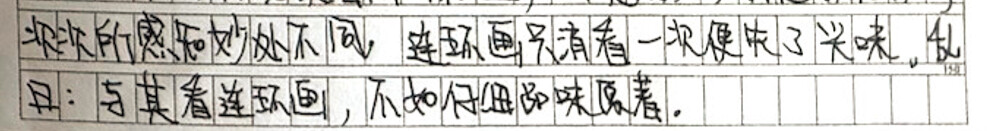 次次所感知妙处不同，连环画只消看一次便失了兴味。私
丑：与其看连环画，不如仔细品味原著。